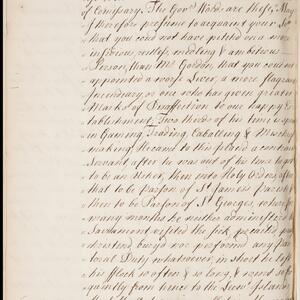 of Comissary. The Gov.rs Words are these, May
I therefore presume to acquaint your
that you could not have pitched on a more
insidious, restless, medling & ambitious
Person, than Mr. Gordon, that you could not
appointed a worse Liver, a more flagrant
Incendiary, or one who has given greater
Marks of Disaffection to our happy E
tablishment. Two thirds of his time is spen
in Gaming, Trading, Caballing & Mischief
making. He came to this Island a contract
Servant after he was out of his time began
to be an Usher, then into Holy Orders, after
that to be Parson of St. James's Parish &
then to be Parson of St. Georges, where for
many months he neither administered the
Sacrament visited the sick, preached,
christend, buryd nor performd any Pa
toral Duty whatsoever, in short he left
his flock so often & so long, & went so fre
quently from hence to the Leewd. Islands